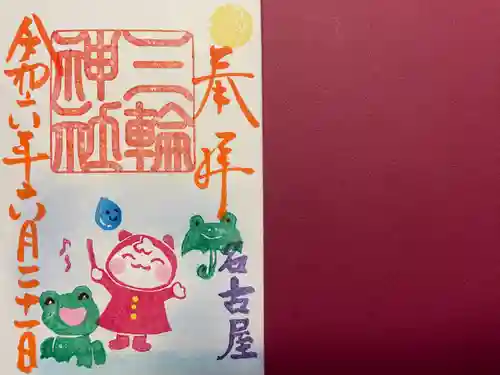 奉拝
三輪
神社
名古屋
令和六年六月二十一日